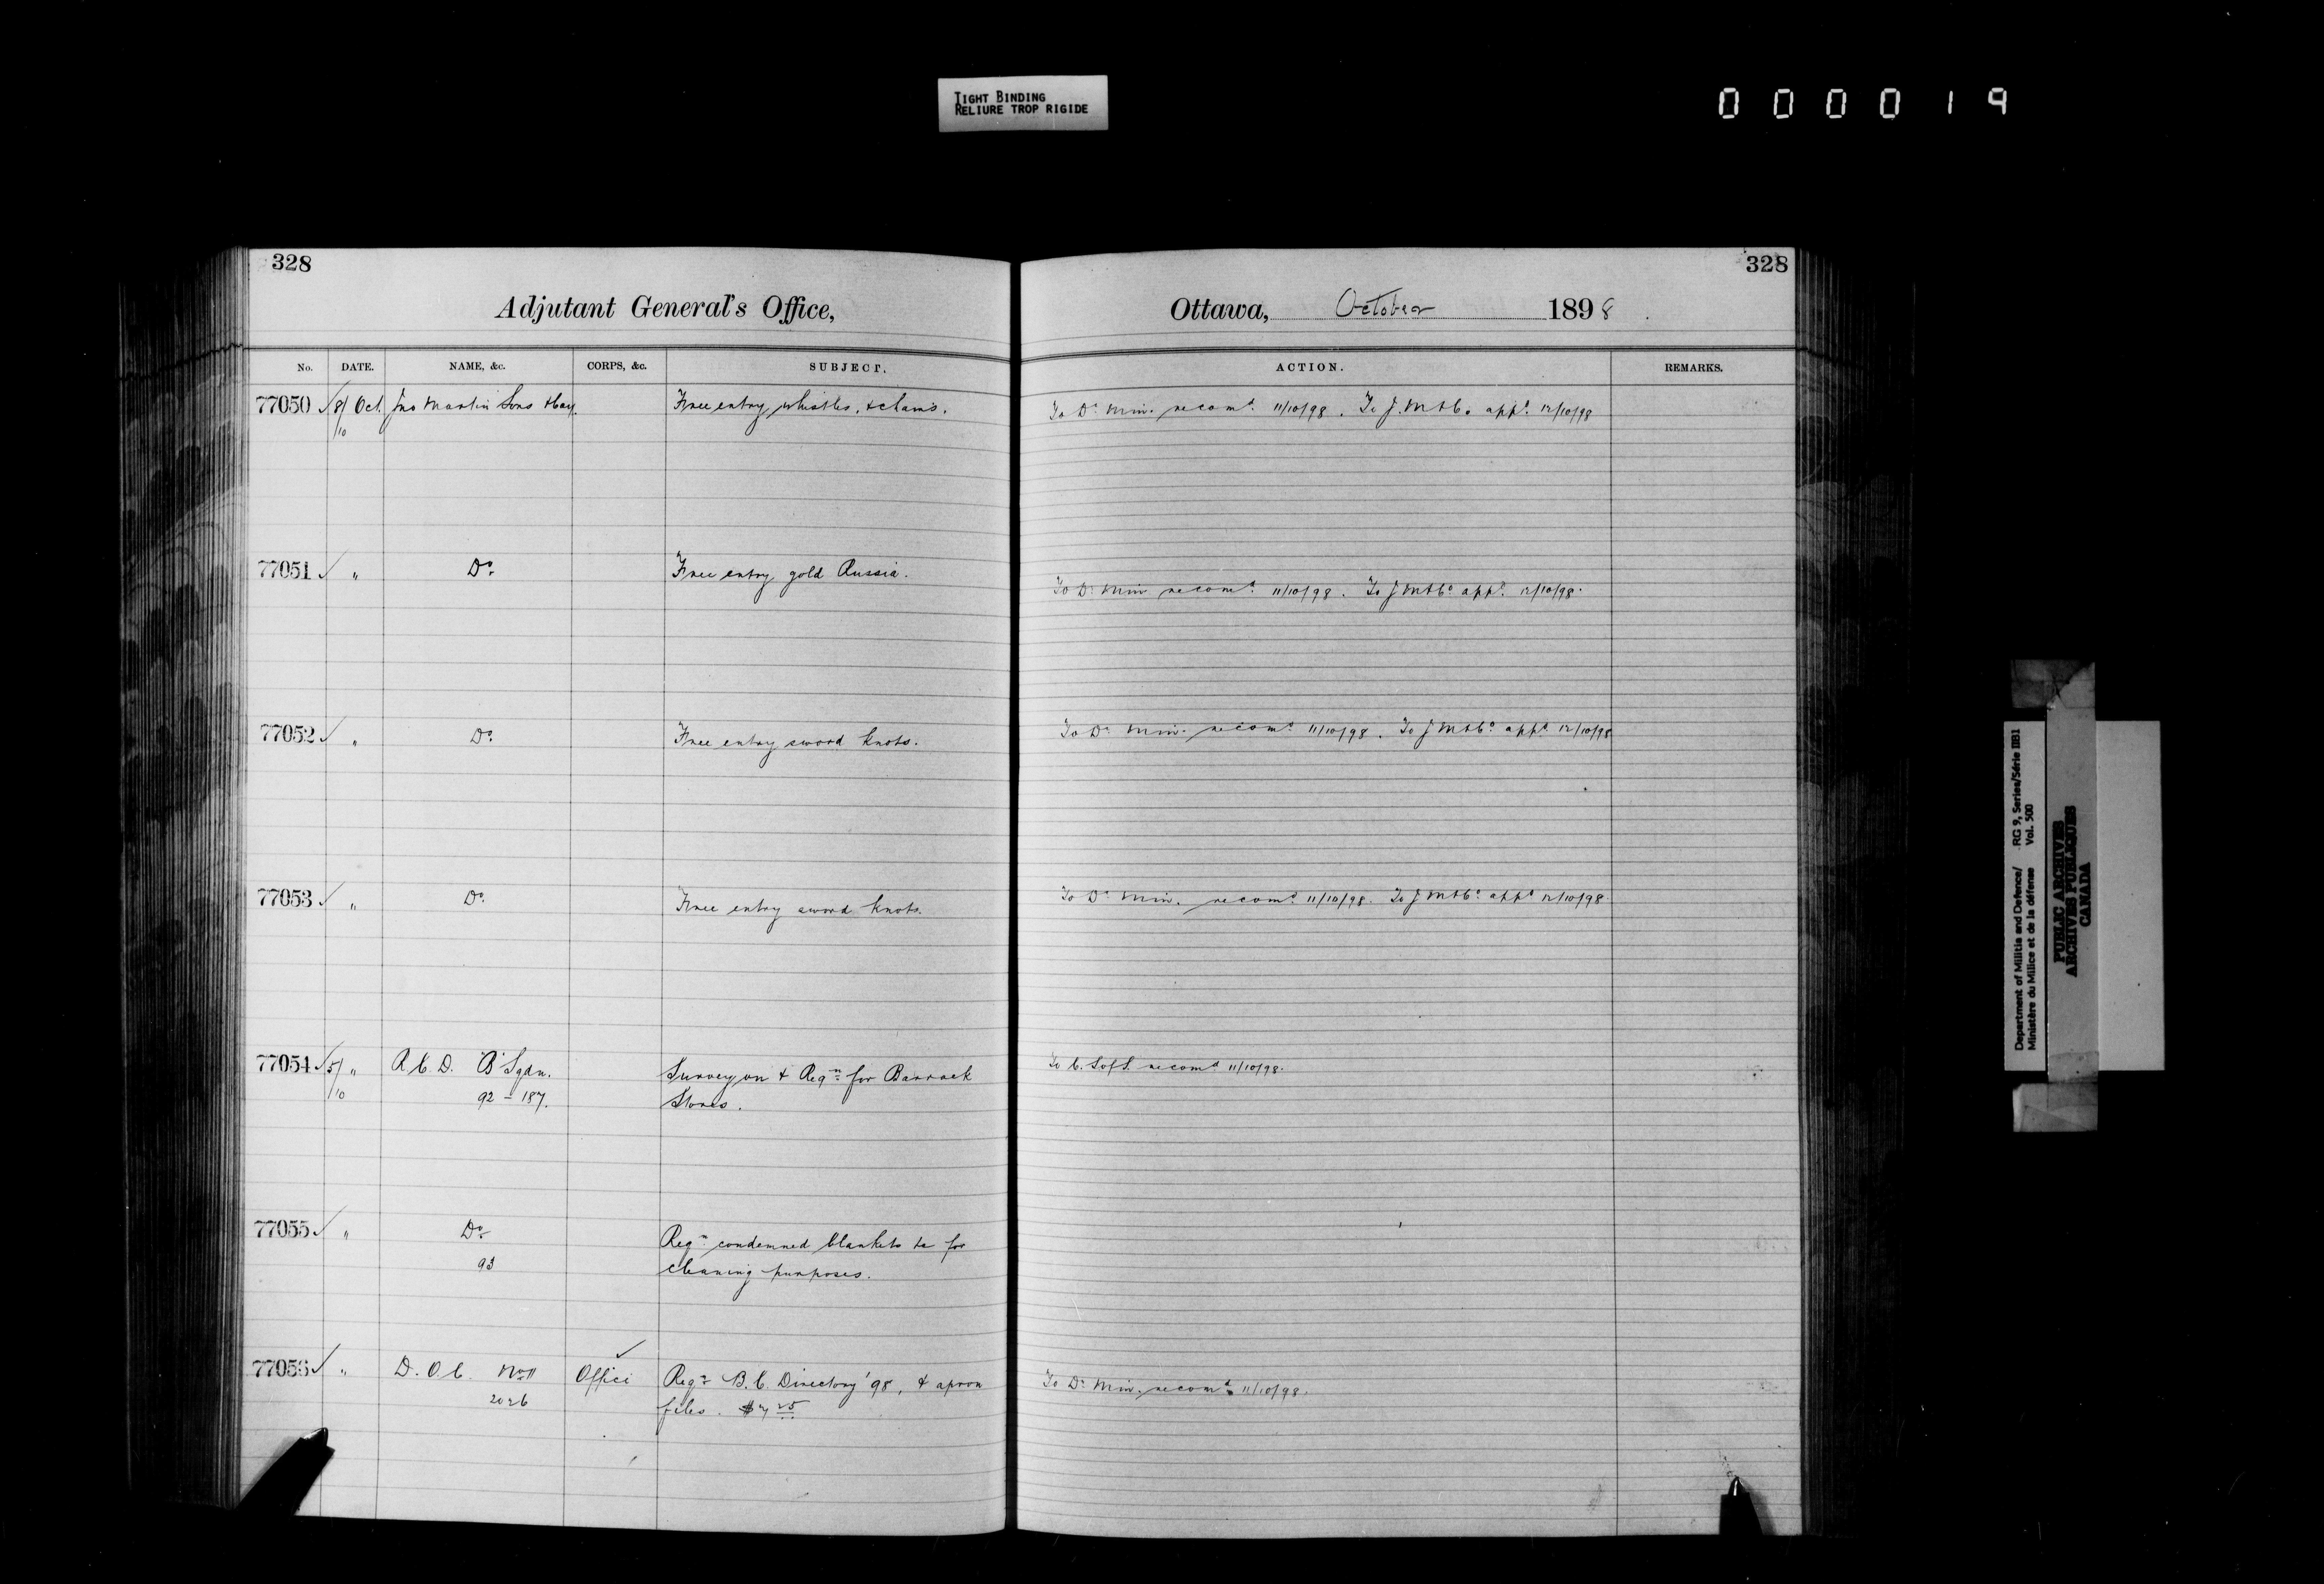 TIGHT BINDING
RELIURE TROP RIGIDE
0 0 0 0 1 9
328
Adjutant General's Office,
No. DATE. NAME, &c. CORPS, &c. SUBJECT.
77050 ✓ 8/10 Oct. Jno Martin Sons & Co. Free entry whistles, & chains.
77051 ✓ " Do. Free entry gold Russia.
77052 ✓ " Do. Free entry sword knots.
77053 ✓ " Do. Free entry sword knots.
77054 ✓ 5/10 " R. C. D. "B" Sqdn. Survey on & Reqn. for Barrack
92 – 187. Stores.
77055 ✓ " Do. Reqn. condemned blankets &c for
93 cleaning purposes.
77056 ✓ " D. O. C. No. 11 Office ✓ Reqn. B. C. Directory '98, & apron
2026 files. $7 25
328
Ottawa, October 1898.
ACTION. REMARKS.
To D. Min. recomd. 11/10/98. To J. M. & Co. appd. 12/10/98
To D. Min recomd. 11/10/98. To J M & Co. appd. 12/10/98.
To D. Min. recomd. 11/10/98. To J M & Co. appd. 12/10/98
To D. Min. recomd. 11/10/98. To J M & Co. appd. 12/10/98.
To C. S of S. recomd. 11/10/98.
To D. Min. recomd. 11/10/98.
Department of Militia and Defence/ RG 9, Series/Série IIB1
Ministère du Milice et de la défense Vol. 500
PUBLIC ARCHIVES
ARCHIVES PUBLIQUES
CANADA